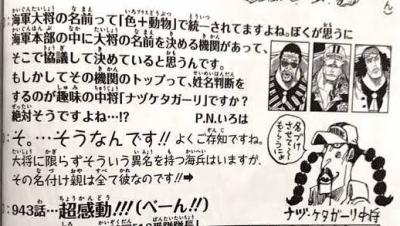 海軍大将の名前って「色+動物」で統一されてますよね。ぼくが思うに
海軍本部の中に大将の名前を決める機関があって、
そこで協議して決めていると思うんです。
もしかしてその機関のトップって、姓名判断
をするのが趣味の中将「ナヅケタガーリ」ですか?
絶対そうですよね…!? P.N.いろは
そ。…そうなんです!! よくご存知ですね。
大将に限らずそういう異名を持つ海兵はいますが、
その名付け親は全て彼なのです!!➡
943話…超感動!!!(べーん!!)
名づけ
させて〜
もらうにょ
ナヅ・ケタガーリ中将